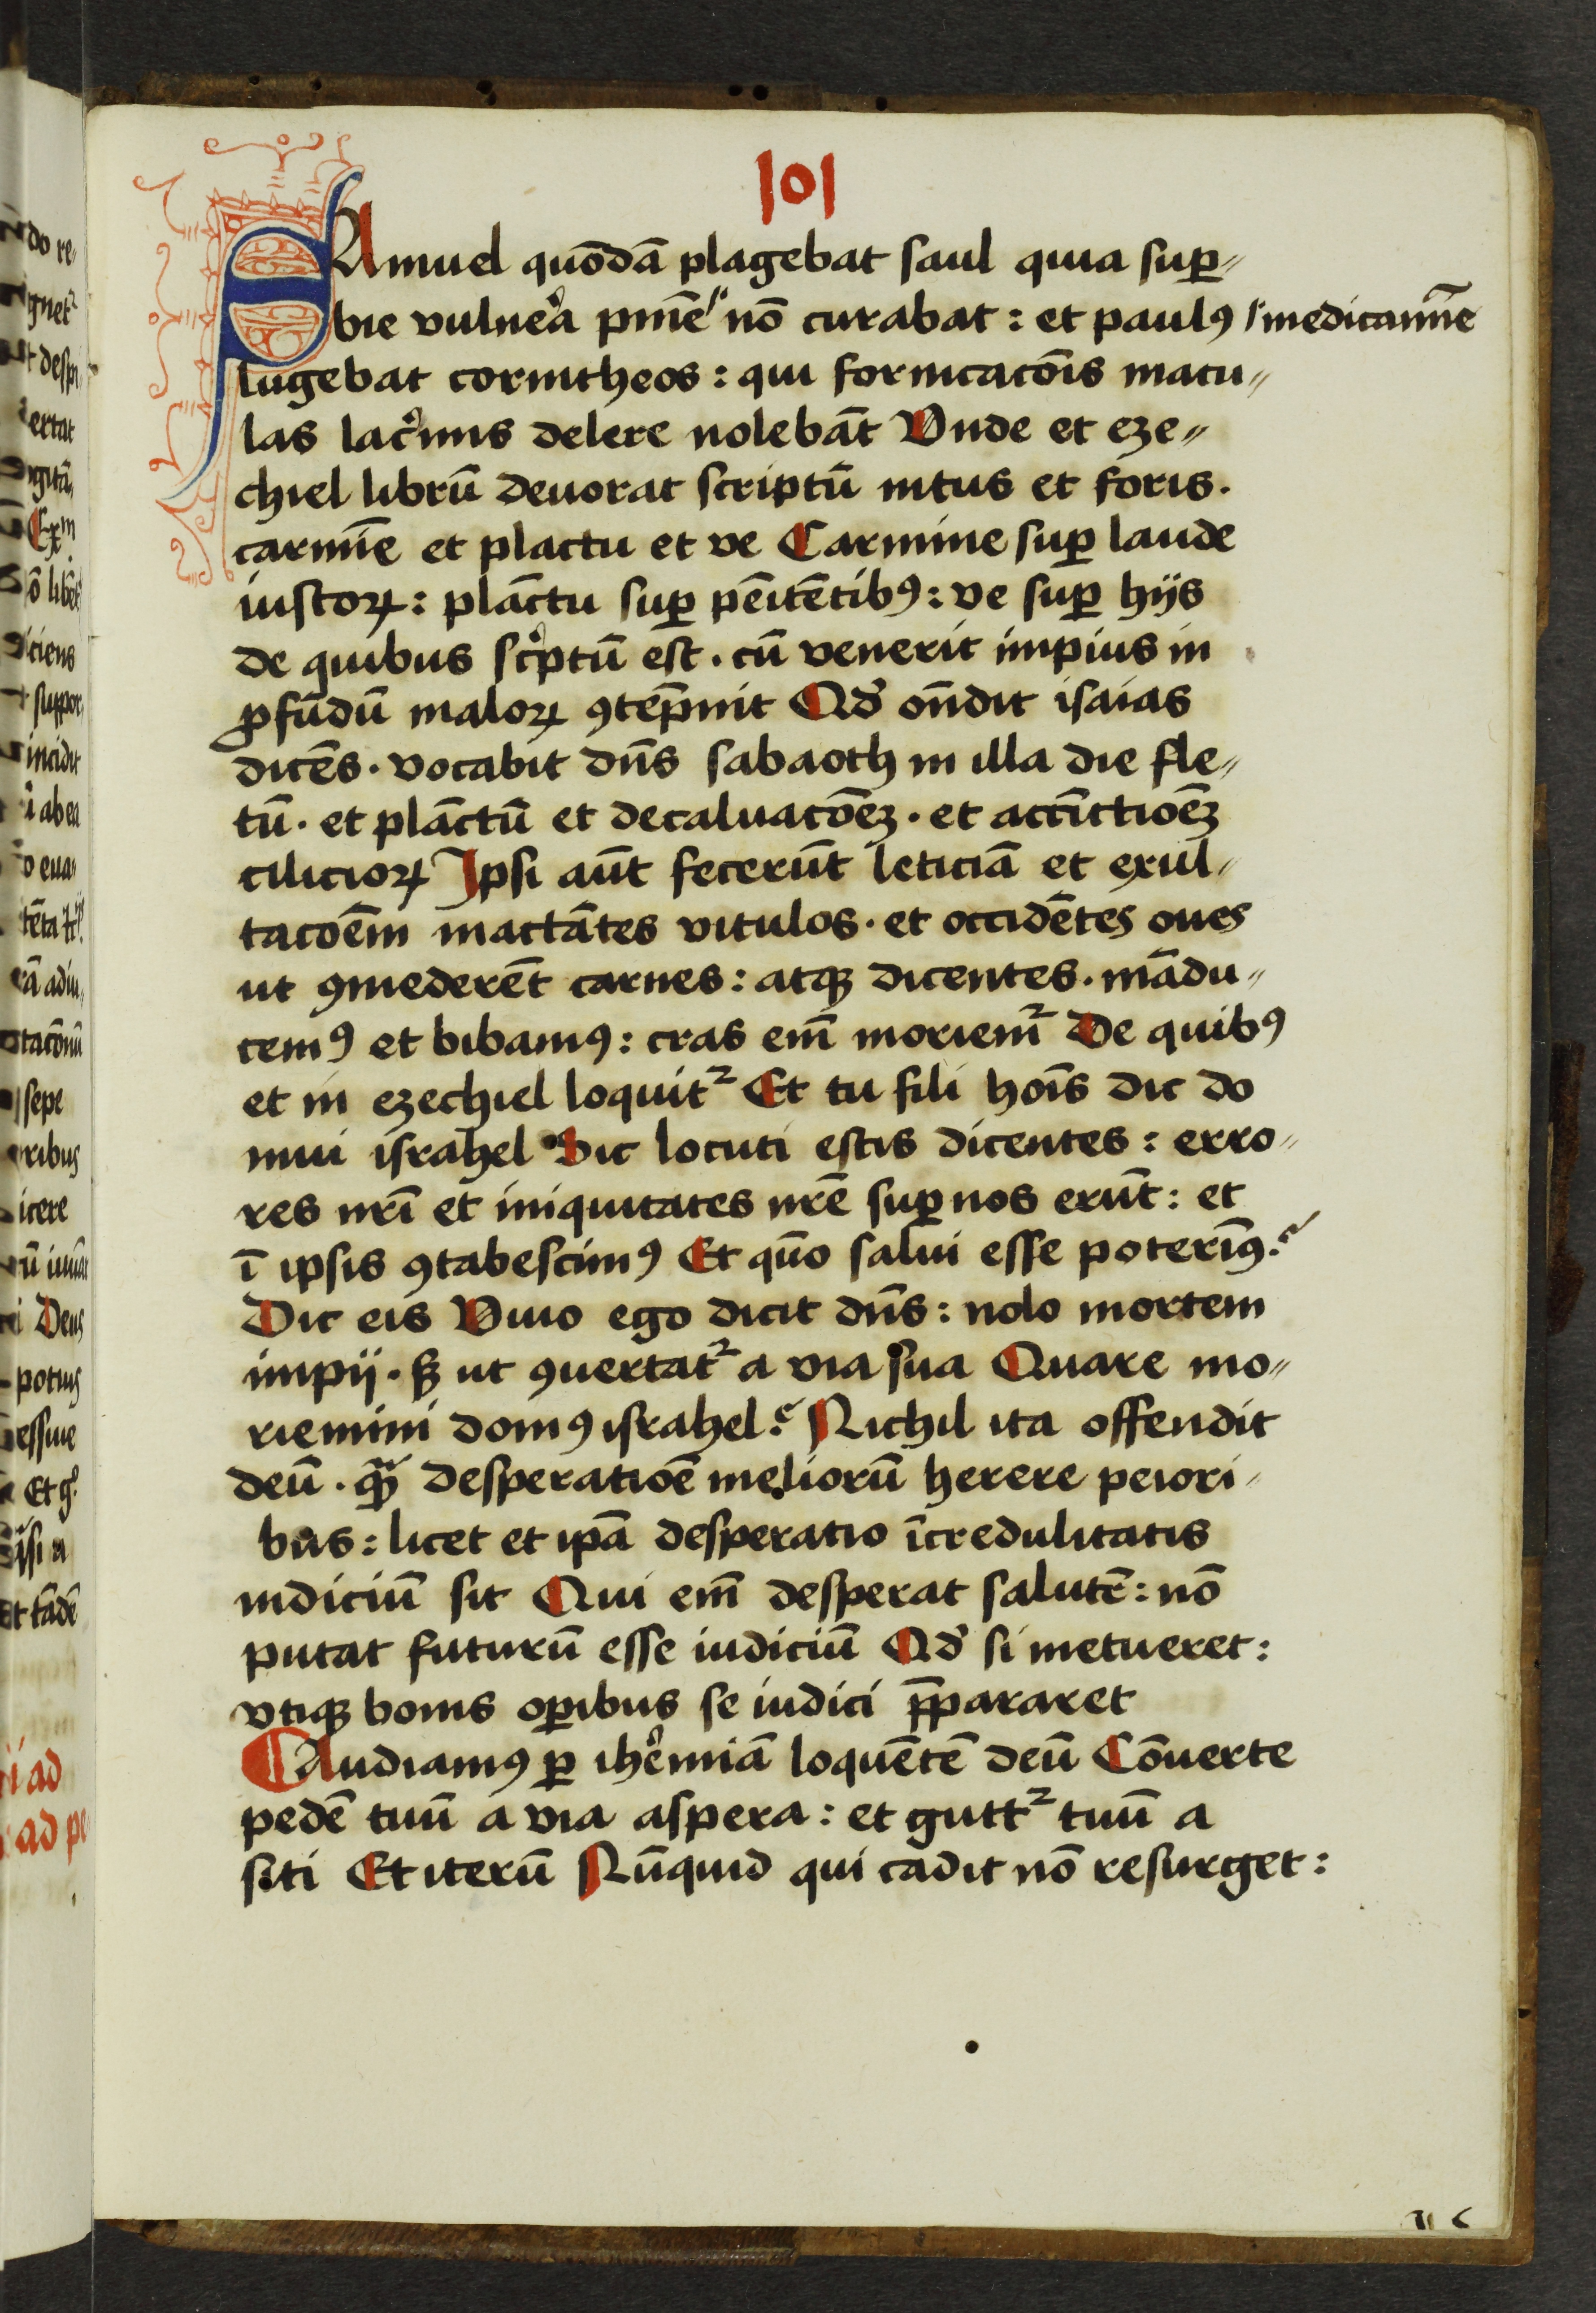 101
SAmuel quōdā plagebat saul quia sup̲⸗
bie vulneͬa pniē nō curabat : et paulꝯ medicamīe
lugebat corintheos : qui fornicacōis macu⸗
las lacͥmis delere nolebāt Vnde et eze⸗
chiel librū deuorat scriptū intus et foris .
carmīe et plactu et ve Carmine suꝑ laude
iustoꝝ : plāctu suꝑ pēitētibꝯ : ve suꝑ hijs
de quibus scͥptū est . cū venerit impius in
ꝓfūdū maloꝝ ꝯtēpnit Qd̛ oñdit isaias
dicēs . vocabit dñs sabaoth in illa die fle⸗
tū . et plāctū et decaluacōeꝫ . et accīctioēꝫ
cilicioꝝ Ipsi aūt fecerūt leticiā et exul⸗
tacoēm mactātes vitulos . et occidētes oues
ut ꝯmederēt carnes : atqꝫ dicentes . mādu⸗
cemꝯ et bibamꝯ : cras em̄ moriem̄ᷣ De quibꝯ
et in ezechiel loquitᷣ Et tu fili hoīs dic do
mui israhel Sic locuti estis dicentes : erro⸗
res nr̄i et iniquitates nr̄e suꝑ nos erūt : et
ī ipsis ꝯtabescimꝯ Et quō salui esse poterimꝯ ?
Dic eis Viuo ego dicit dñs : nolo mortem
impij . sꝫ ut ꝯuertatᷣ a via sua Quare mo⸗
riemini domꝯ israhel ? Nichil ita offendit
deū . qͣꝫ desperatioē meliorū herere peiori⸗
bus : licet et ip̄a desperatio īcredulitatis
indiciū sit Qui em̄ desperat salutē : nō
putat futurū esse iudiciū Qd̛ si metueret :
vtiqꝫ bonis oꝑibus se iudici p̄pararet
¶ Audiamꝯ ꝑ iheͬmiā loquētē deū Cōuerte
pedē tuū a via aspera : et guttᷣ tuū a
siti Et iterū Nūquid qui cadit nō resurget :